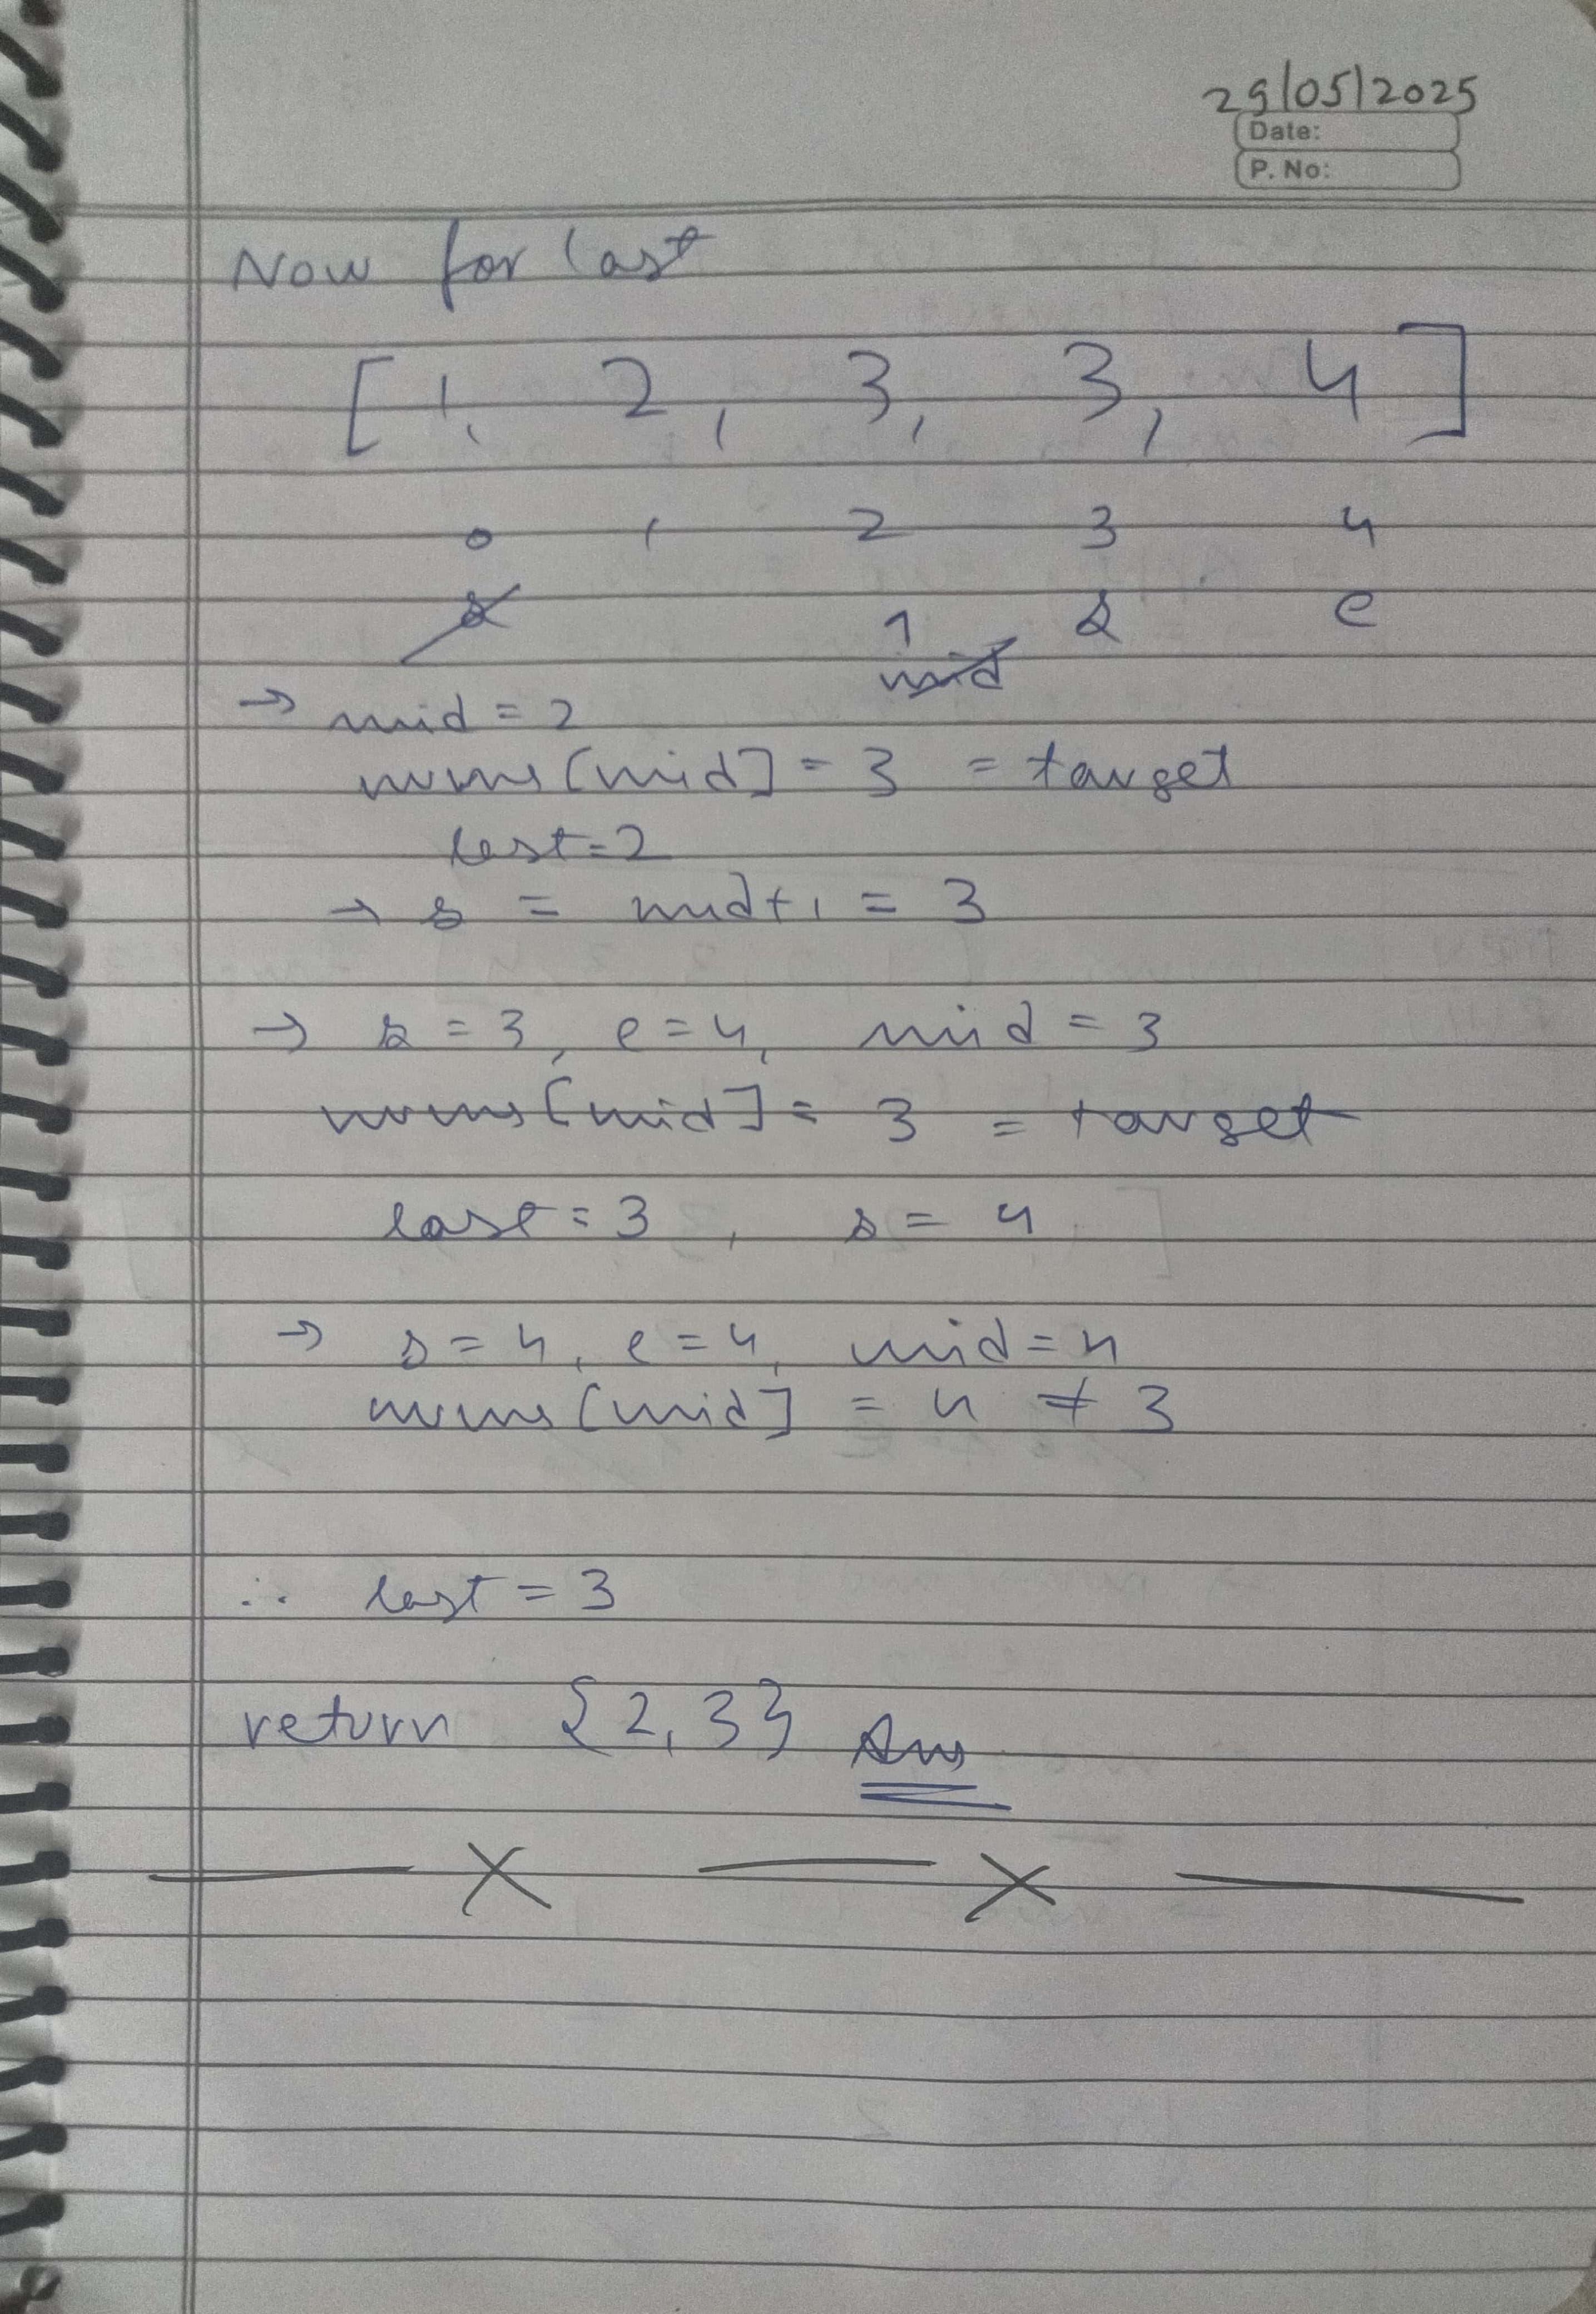 29/05/2025
Date:
P. No:
Now for last
[ 1, 2, 3, 3, 4 ]
0 1 2 3 4
s ↑ s e
mid
→ mid = 2
nums[mid] = 3 = target
last = 2
→ s = mid+1 = 3
→ s = 3, e = 4, mid = 3
nums[mid] = 3 = target
last = 3, s = 4
→ s = 4, e = 4, mid = 4
nums[mid] = 4 ≠ 3
∴ last = 3
return {2,3} Ans
— X — X —